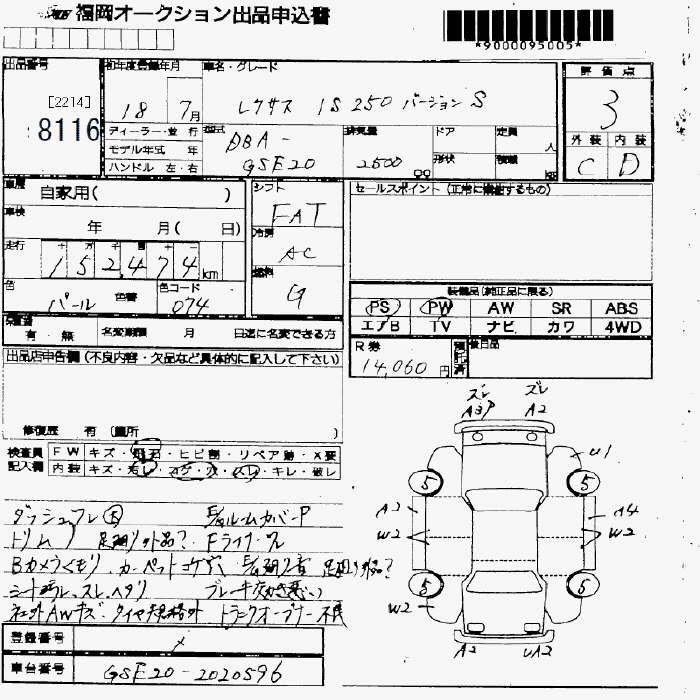 福岡オークション出品申込書
*9000095005*
出品番号
[2214]
8116
初年度登録年月
18 7月
車名・グレード
レクサス IS250 バージョンS
評価点
3
外装 内装
C D
ディーラー・並行
モデル年式 年
ハンドル 左・右
型式
DBA-
GSE20
排気量
2500
cc
ドア
形状
定員
人
積載
車歴
自家用( )
車検
年 月( 日)
走行
十 万 千 百 十 一
152,474 km
色
パール
色替
色コード
074
シフト
FAT
冷房
AC
燃料
G
セールスポイント (正常に機能するもの)
装備品(純正品に限る)
PS PW AW SR ABS
エアB TV ナビ カワ 4WD
R券
14,060円
預託済
後日品
保証書
有・無
名変期限 月 日迄に名変できる方
出品店申告欄 (不良内容・欠品など具体的に記入して下さい)
修復歴 有 (箇所
検査員記入欄
FW キズ・飛石・ヒビ割・リペア跡・X要
内装 キズ・汚レ・コゲ・穴・スレ・キレ・破レ
ダッシュフレ
ルームカバーP
トリム
足廻り外品?
Fライナーワレ
Bカメラくもり、カーペットコゲ穴
足廻り外品?
シート汚レ、スレ、ヘタリ
ブレーキ効き悪い
社外AWキズ・タイヤ規格外
トランクオープナー不良
登録番号
車台番号
GSE20-2020596
ズレ ズレ
A3P A2
U1
5 5
A2 A4
W2 W2
W2 W2
5 5
W2
A2 UA2